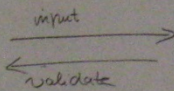 input
validate